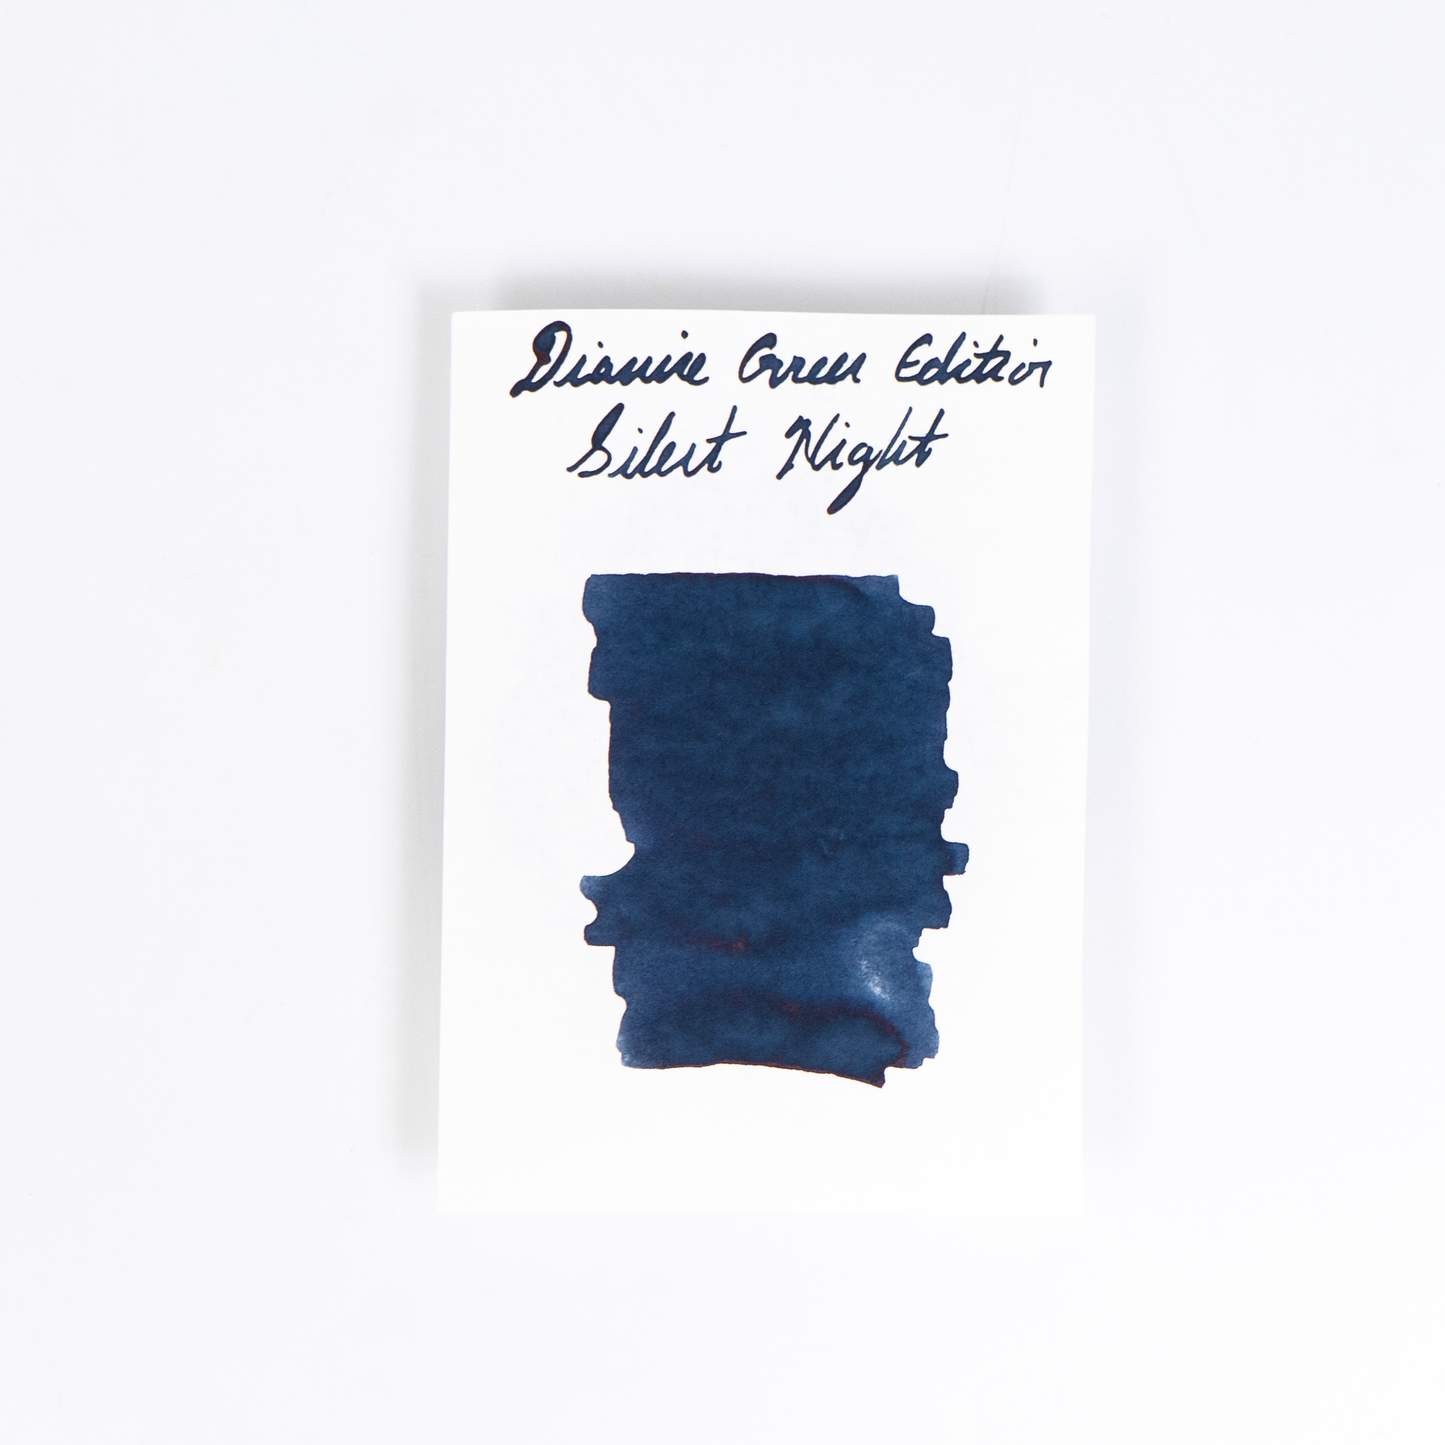 Diamine Green Edition
Silent Night